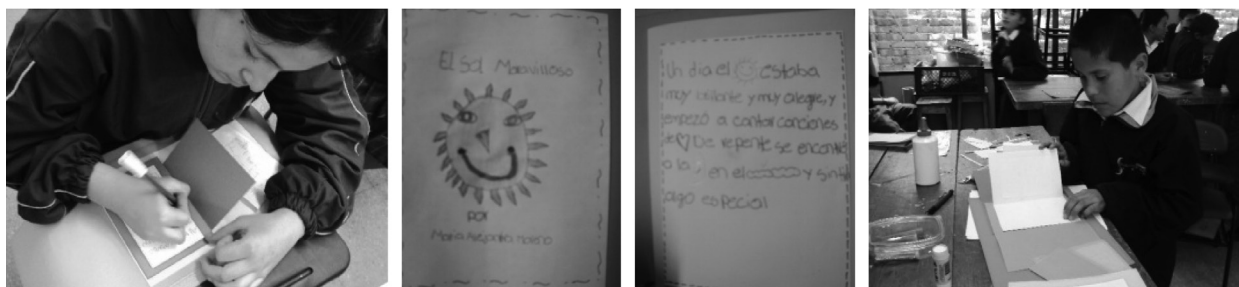 El Sol Maravilloso
por
María Alejandra Moreno
Un día el estaba
muy brillante y muy alegre, y
empezó a cantar canciones
de De repente se encontró
a la en el y sintió
algo especial